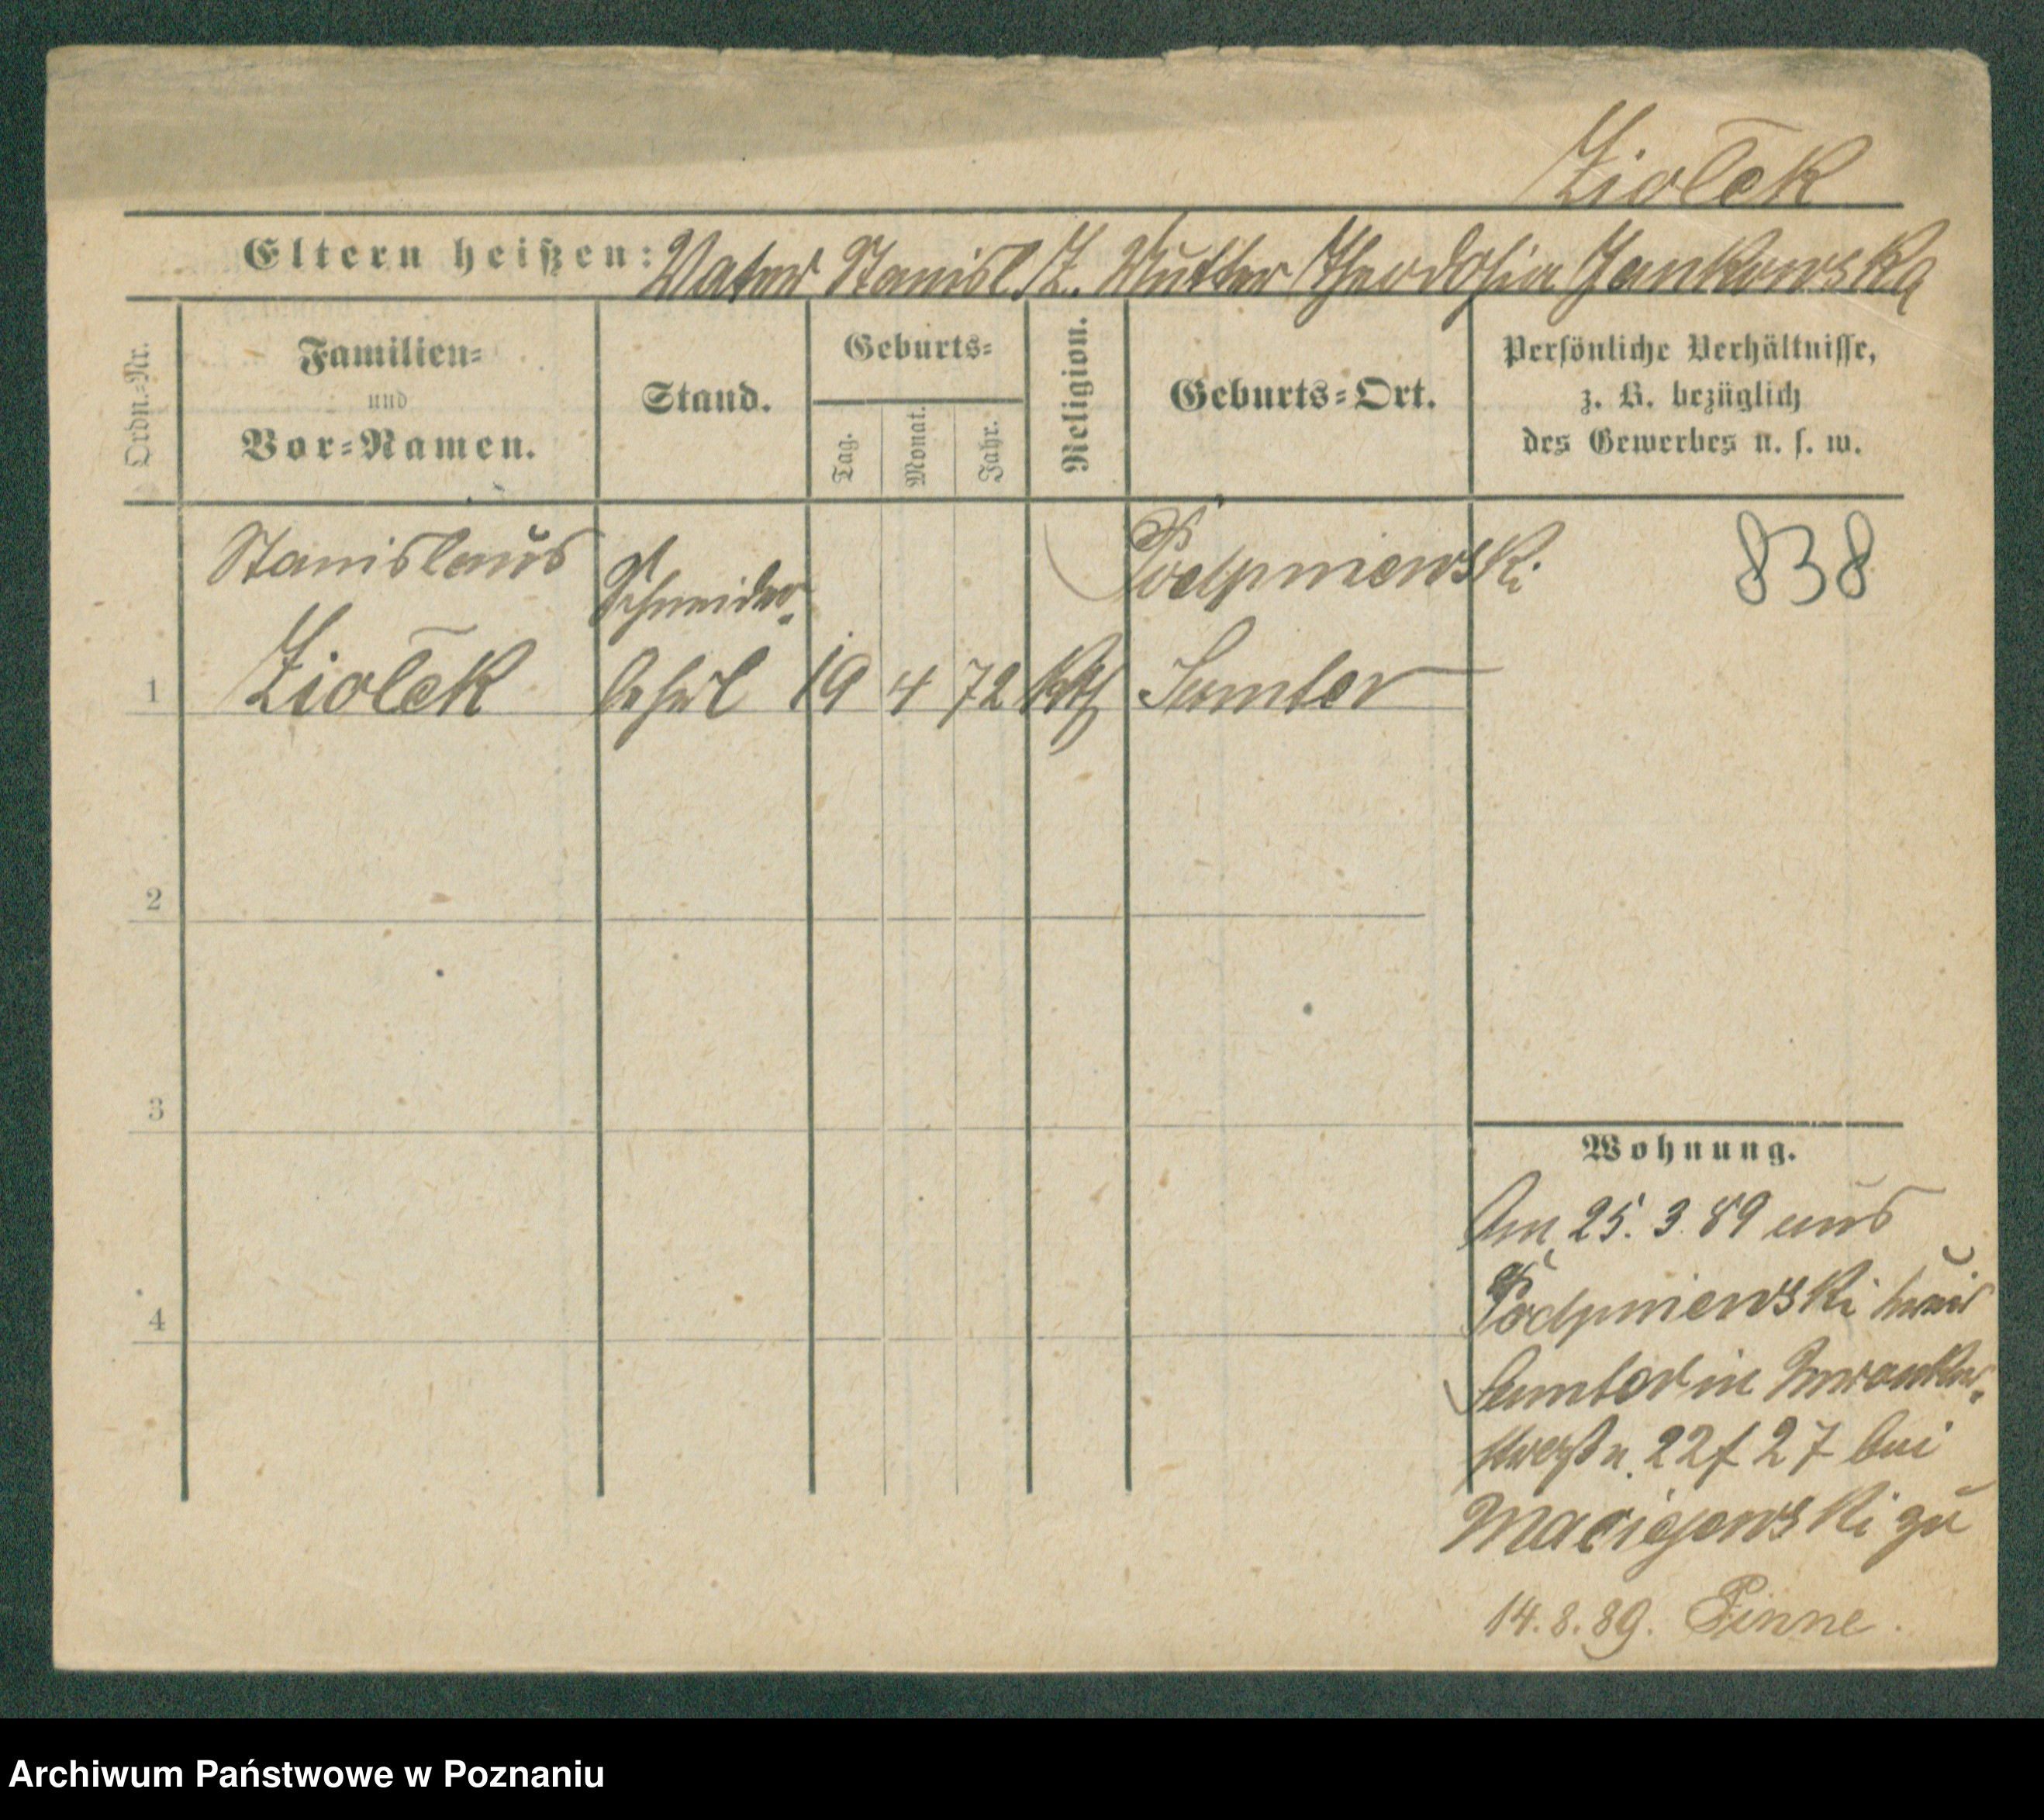 Ziołek
Eltern heißen: Vater Stanisl. Z. Mutter Theodosia Jankowska
Ordn.-Nr.
Familien-
und
Vor-Namen.
Stand.
Geburts-
Tag.
Monat.
Jahr.
Religion.
Geburts-Ort.
Persönliche Verhältnisse,
z. B. bezüglich
des Gewerbes u. s. w.
Stanislaus
Schneider-
Podpniewski
838
1 Ziołek lehrl 19 4 72 kth Samter
2
3
4
Wohnung.
Am 25. 3. 89 aus
Podpniewski
Samter in Wronker-
22 f 27 bei
Maciejewski zu
14. 8. 89. Pinne.
Archiwum Państwowe w Poznaniu